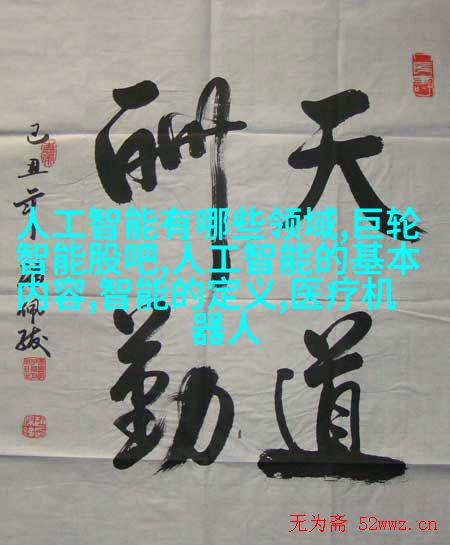 天道
酬勤
己丑
人工智能有哪些领域,巨轮
智能股吧,人工智能的基本
内容,智能的定义,医疗机
器人
无为斋 52wwz.cn